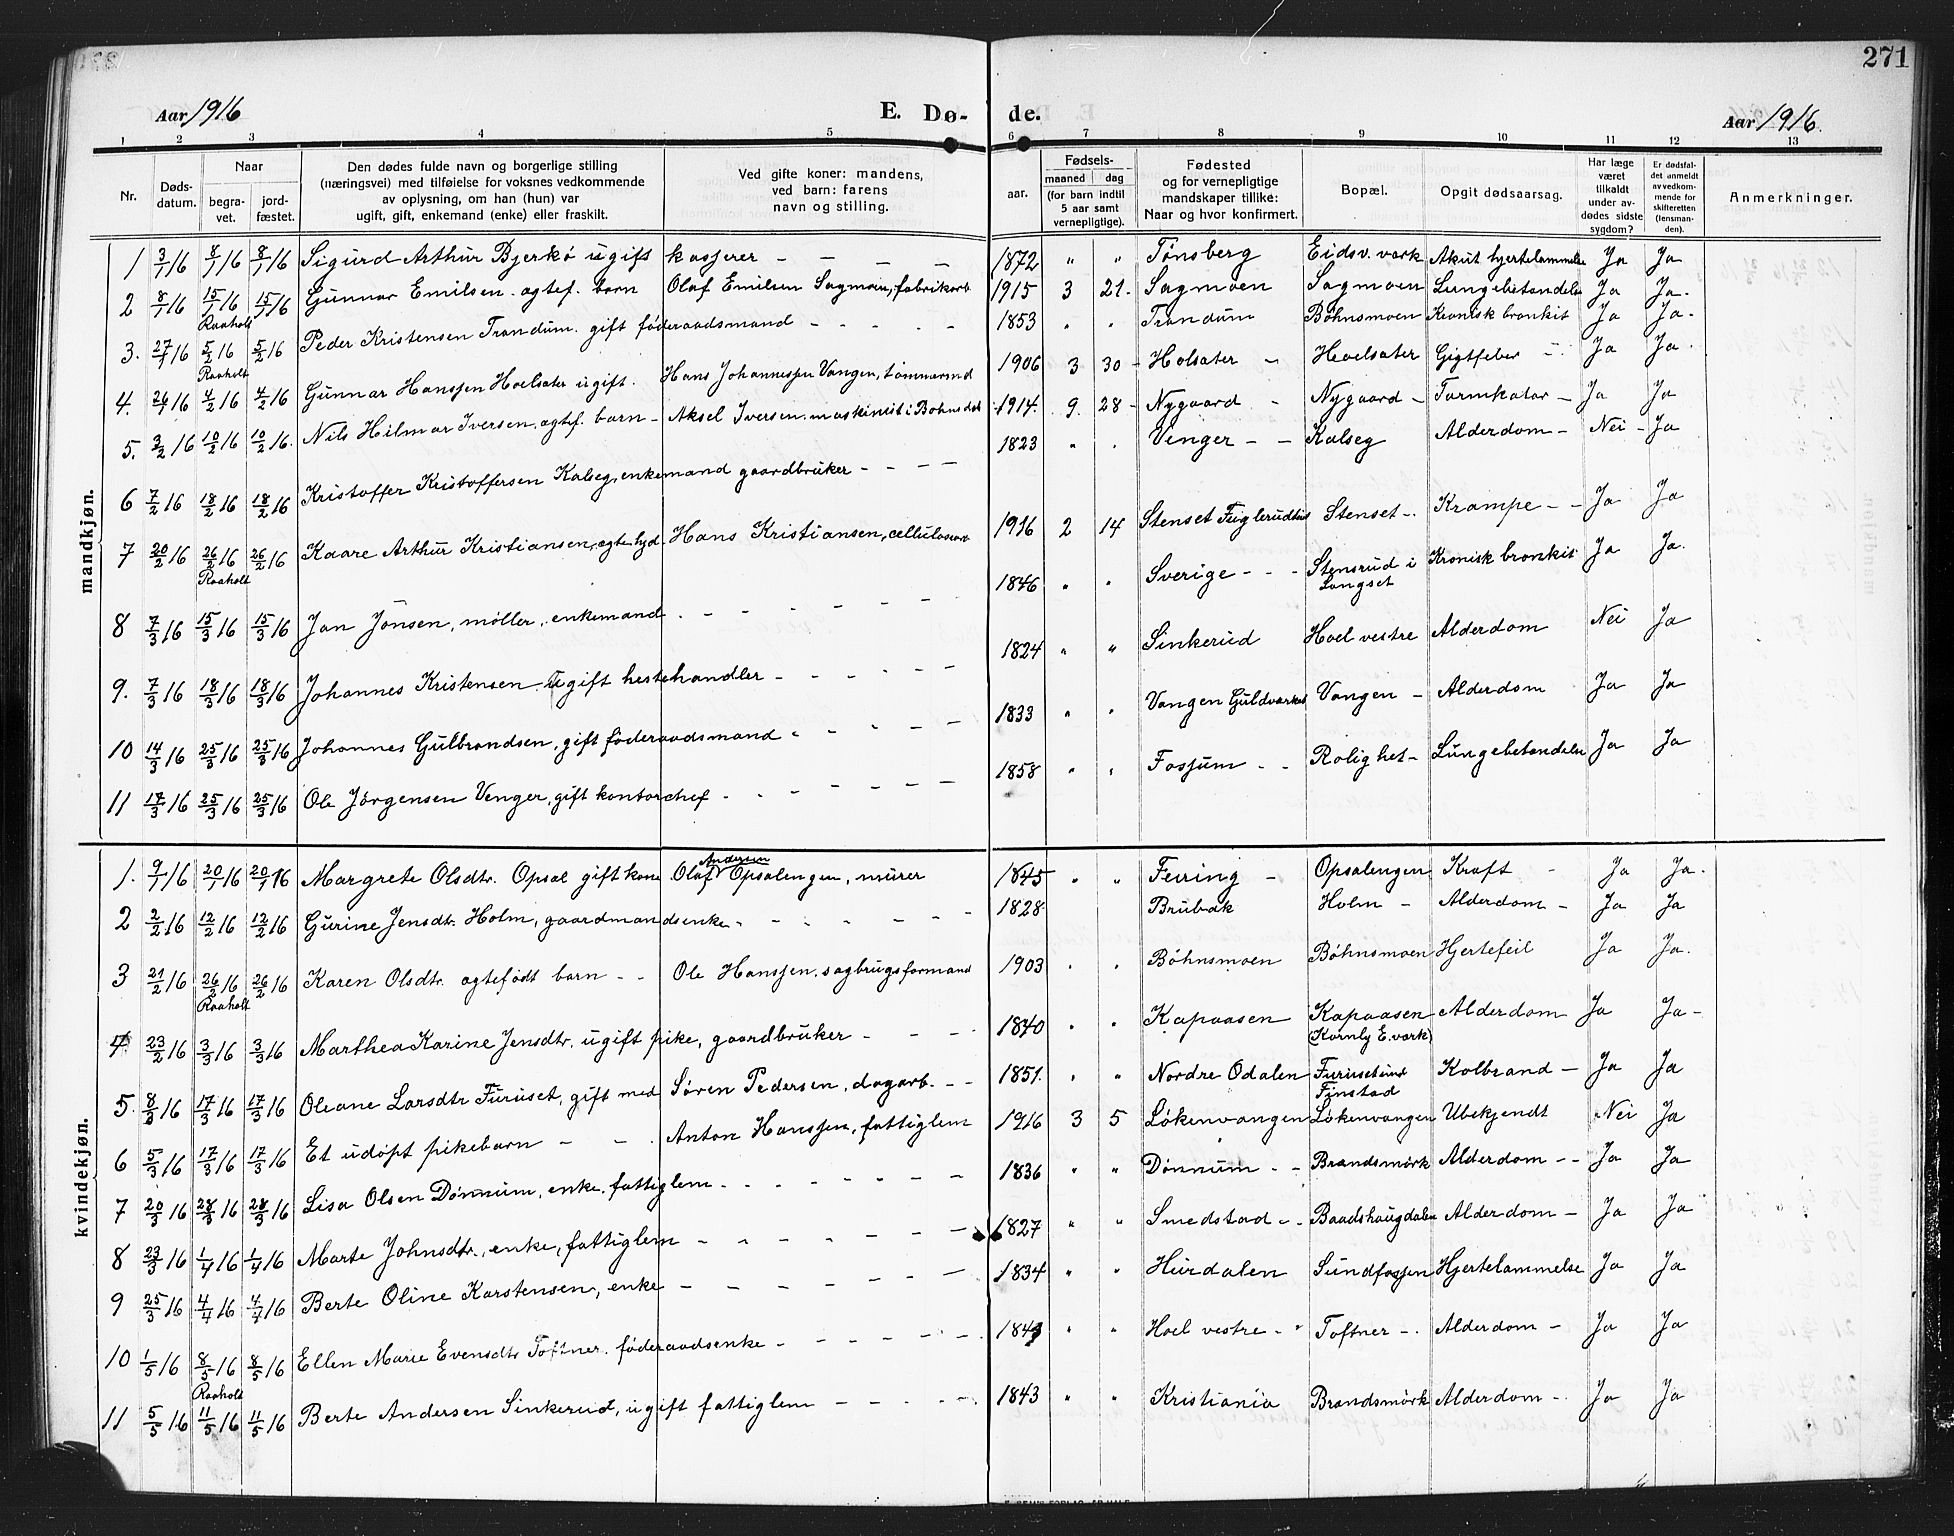 271
Aar 1916
E. Dø-
de.
Aar 1916.
1 2 3 4 5 6 7 8 9 10 11 12 13
Nr.
Døds-
datum.
Naar
begra-
vet.
jord-
fæstet.
Den dødes fulde navn og borgerlige stilling
(næringsvei) med tilføielse for voksnes vedkommende
av oplysning, om han (hun) var
ugift, gift, enkemand (enke) eller fraskilt.
Ved gifte koner: mandens,
ved barn: farens
navn og stilling.
aar.
Fødsels-
maaned dag
(for barn indtil
5 aar samt
vernepligtige).
Fødested
og for vernepligtige
mandskaper tillike:
Naar og hvor konfirmert.
Bopæl.
Opgit dødsaarsag.
Har læge
været
tilkaldt
under av-
dødes sidste
sygdom?
Er dødsfal-
det anmeldt
av vedkom-
mende for
skifteretten
(lensman-
den).
Anmerkninger.
mandkjøn.
1 3/1 16 8/1 16 8/1 16 Sigurd Arthur Bjerkø ugift kasserer – – – – 1872 " " Tønsberg Eidsv. verk Akut hjertelammelse Ja Ja
2 8/1 16 15/1 16 15/1 16 Gunnar Emilsen. agtef. barn Olaf Emilsen Sagmoen, fabrikarb 1915 3 21. Sagmoen Sagmoen Lungebetændelse Ja Ja.
Raaholt
3. 27/1 16 5/2 16 5/2 16 Peder Kristensen Trandum. gift føderaadsmand – – – – – 1853 " " Trandum Bøhnsmoen Kronisk bronkit Ja Ja.
Raaholt
4. 26/1 16 4/2 16 4/2 16 Gunnar Hanssen Hoelsæter ugift. Hans Johannessen Vangen, tømmermd 1906 3 30 Holsæter – Hoelsæter Gigtfeber Ja Ja.
5. 3/2 16 10/2 16 10/2 16. Nils Hilmar Iversen, agtef. barn – Aksel Iversen. maskinist i Bøhnsdal 1914. 9. 28 – Nygaard – Nygaard – Tarmkatar – Ja Ja
6 7/2 16 18/2 16 18/2 16 Kristoffer Kristoffersen Kalseg, enkemand gaardbruker – – – – 1823 " " Venger – – Kalseg Alderdom – Nei – Ja
7 20/2 16 26/2 16 26/2 16 Kaare Arthur Kristiansen, Hans Kristiansen, 1916 2 14 Stenset Stenset –. Krampe – – Ja Ja
Raaholt
8 7/3 16 15/3 16 15/3 16 Jan Jönsen, møller, enkemand. – – – – – – 1846 " " Sverige – – – Stensrud i Langset Kronisk bronkit Ja Ja.
9. 7/3 16 18/3 16 18/3 16 Johannes Kristensen. Ugift hestehandler – – – – – – 1824 " " Sinkerud Hoel vestre Alderdom Nei Ja
10 14/3 16 25/3 16 25/3 16 Johannes Gulbrandsen, gift føderaadsmand – – – – – 1833 " " Vangen Guldverket Vangen – Alderdom Ja Ja
11 17/3 16 25/3 16 25/3 16 Ole Jørgensen Venger, gift kontorchef – – – – – – 1858 " " Fossum – – Rolighet – Lungebetændelse Ja Ja
kvindekjøn.
1. 9/1 16 20/1 16 20/1 16 Margrete Olsdtr. Opsal gift kone Olaf Andersen Opsalengen, murer 1845 " " Feiring – Opsalengen Kræft – Ja Ja.
2 2/2 16 12/2 16 12/2 16 Gurine Jensdtr. Holm, gaardmandsenke – – – – – – 1828 Brubak Holm – Alderdom – Ja Ja
3 21/2 16 26/2 16 26/2 16 Karen Olsdtr. agtefødt barn – – Ole Hanssen. sagbrugsformand 1903 " " Bøhnsmoen Bøhnsmoen Hjertefeil Ja Ja.
Raaholt
4 23/2 16 3/3 16 3/3 16 Marthea Karine Jensdtr. ugift pike, gaardbruker – – – 1840 " " Kapaasen Kapaasen Alderdom Ja Ja –
(Kornly E. verk)
5. 8/3 16 17/3 16 17/3 16 Oleane Larsdtr Furuset, gift med Søren Pedersen, dagarb. – – 1851. " " Nordre Odalen Furuset Finstad Kolbrand – Ja Ja
6 5/3 16 17/3 16 17/3 16 Et udøpt pikebarn – – Anton Hanssen, fattiglem 1916 3 5 Løkenvangen Løkenvangen Ubekjendt Nei Ja
7 20/3 16 28/3 16 28/3 16 Lisa Olsen Dønnum, enke, fattiglem – – – – – – 1836 " " Dønnum – – Brandsmørk Alderdom – – Ja Ja
8 23/3 16 1/4 16 1/4 16 Marte Johnsdtr., enke, fattiglem – – – – – – 1827 " " Smedstad – – Baadshaugdalen Alderdom – Ja Ja
9 25/3 16 4/4 16 4/4 16 Berte Oline Karstensen, enke – – – – – – – 1834 " " Hurdalen Sundfossen Hjertelammelse Ja Ja
10 1/5 16 8/5 16 8/5 16 Ellen Marie Evensdtr Toftner. føderaadsenke – – – – – – Hoel vestre – " Toftner –. Alderdom – Ja Ja
Raaholt
11 5/5 16 11/5 16 11/5 16 Berte Andersen Sinkerud, ugift fattiglem – – – – – 1843 " " Kristiania Brandsmørk Alderdom – Ja Ja